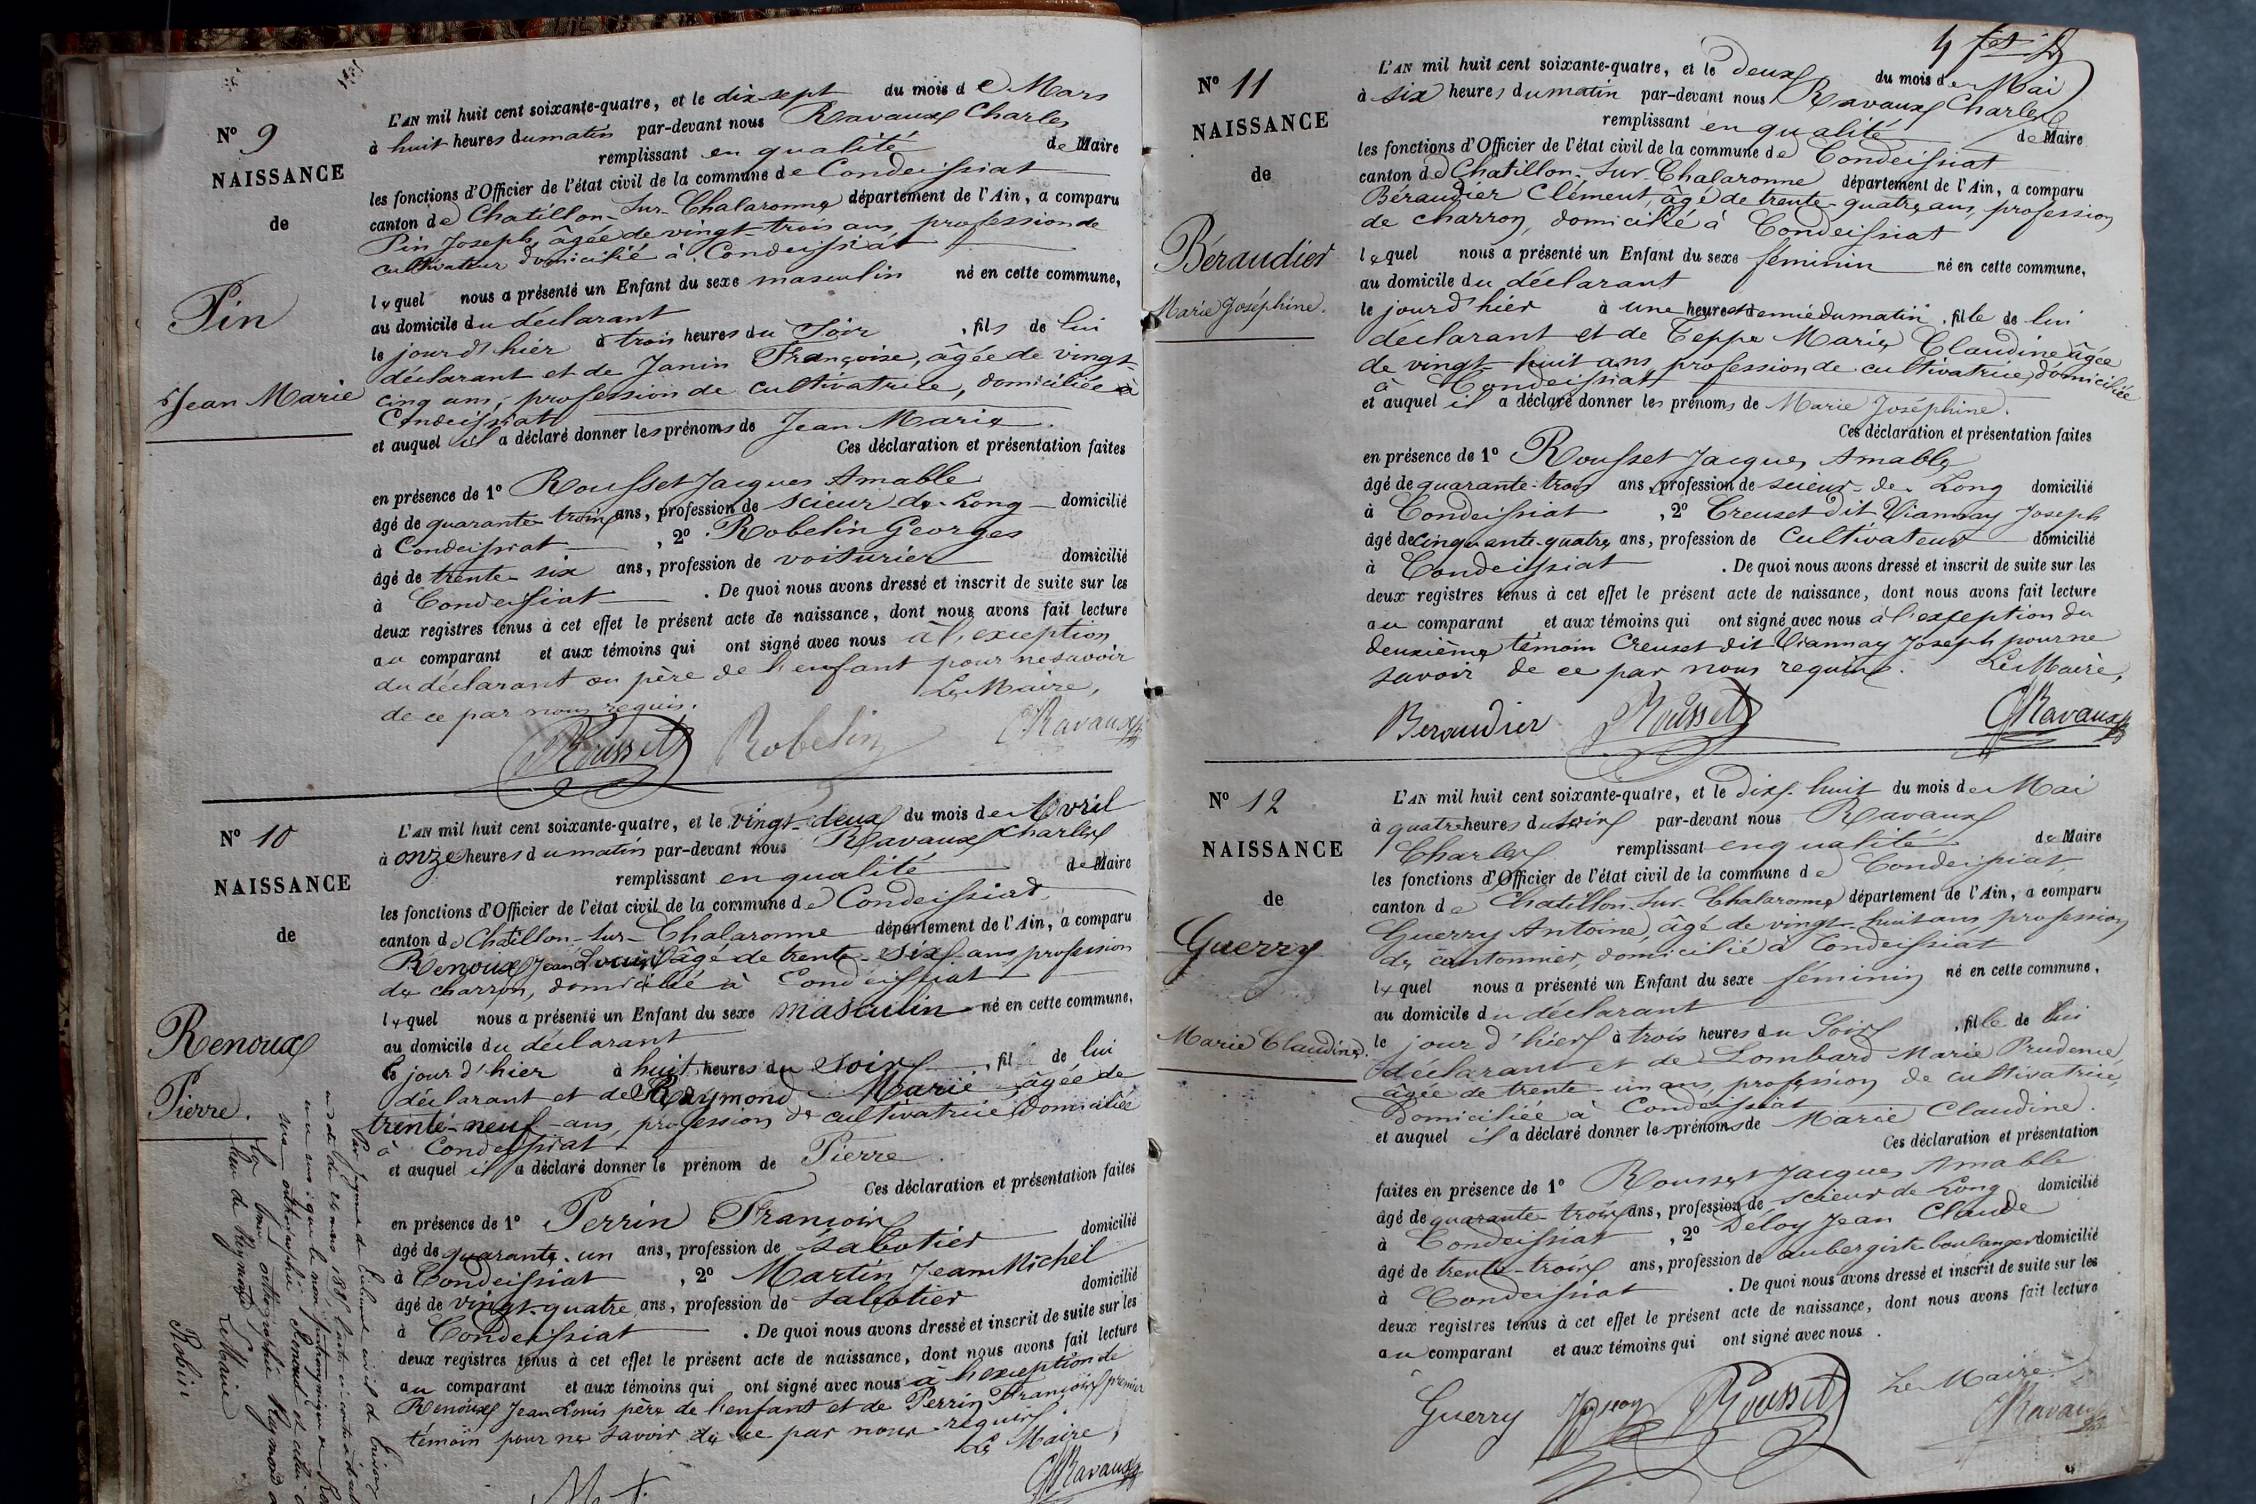 N° 9
NAISSANCE
de
Pin
Jean Marie
L'AN mil huit cent soixante-quatre, et le dix sept du mois de Mars
à huit heures du matin par-devant nous Ravaux Charles
remplissant en qualité de Maire
les fonctions d'Officier de l'état civil de la commune de Condeissiat
canton de Chatillon-sur-Chalaronne département de l'Ain, a comparu
Pin Joseph, âgée de vingt trois ans, profession de
cultivateur domicilié à Condeissiat
lequel nous a présenté un Enfant du sexe masculin né en cette commune,
au domicile du déclarant
le jour d'hier à trois heures du soir, fils de lui
déclarant et de Janin Françoise, âgée de vingt-
cinq ans, profession de cultivatrice, domiciliée à
Condeissiat
et auquel il a déclaré donner les prénoms de Jean Marie.
Ces déclaration et présentation faites
en présence de 1° Rousset Jacques Amable
âgé de quarante-trois ans, profession de scieur de Long domicilié
à Condeissiat, 2° Robelin Georges
âgé de trente-six ans, profession de voiturier domicilié
à Condeissiat. De quoi nous avons dressé et inscrit de suite sur les
deux registres tenus à cet effet le présent acte de naissance, dont nous avons fait lecture
au comparant et aux témoins qui ont signé avec nous à l'exception
du déclarant ou père de l'enfant pour ne savoir
de ce par nous requis. Le Maire,
Rousset Robelin Ravaux
N° 10
NAISSANCE
de
Renoux
Pierre.
L'AN mil huit cent soixante-quatre, et le vingt-deux du mois de Avril
à onze heures du matin par-devant nous Ravaux Charles
remplissant en qualité de Maire
les fonctions d'Officier de l'état civil de la commune de Condeissiat
canton de Chatillon-sur-Chalaronne département de l'Ain, a comparu
Renoux Jean Louis âgé de trente-six ans, profession
de charron, domicilié à Condeissiat
lequel nous a présenté un Enfant du sexe masculin né en cette commune,
au domicile du déclarant
le jour d'hier à huit heures du soir, fil de lui
déclarant et de Raymond Marie âgée de
trente-neuf ans, profession de cultivatrice domiciliée
à Condeissiat
et auquel il a déclaré donner le prénom de Pierre.
Ces déclaration et présentation faites
en présence de 1° Perrin François
âgé de quarante-un ans, profession de sabotier domicilié
à Condeissiat, 2° Martin Jean Michel
âgé de vingt-quatre ans, profession de sabotier domicilié
à Condeissiat. De quoi nous avons dressé et inscrit de suite sur les
deux registres tenus à cet effet le présent acte de naissance, dont nous avons fait lecture
au comparant et aux témoins qui ont signé avec nous à l'exception de
Renoux Jean Louis père de l'enfant et de Perrin François premier
témoin pour ne savoir de ce par nous requis.
Le Maire,
Ravaux
Par jugement du tribunal civil de
en date du 24 mars
que le nom patronymique
son orthographié Renoud et celui
la bonne orthographié Raymond
lieu de Reymond
Le Maire
Robin
N° 11
NAISSANCE
de
Béraudier
Marie Joséphine.
L'AN mil huit cent soixante-quatre, et le deux du mois de Mai
à six heures du matin par-devant nous Ravaux Charles
remplissant en qualité de Maire
les fonctions d'Officier de l'état civil de la commune de Condeissiat
canton de Chatillon-sur-Chalaronne département de l'Ain, a comparu
Béraudier Clément, âgé de trente-quatre ans, profession
de charron, domicilié à Condeissiat
lequel nous a présenté un Enfant du sexe féminin né en cette commune,
au domicile du déclarant
le jour d'hier à une heure et demie du matin, fille de lui
déclarant et de Teppe Marie Claudine âgée
de vingt-huit ans, profession de cultivatrice, domiciliée
à Condeissiat
et auquel il a déclaré donner les prénoms de Marie Joséphine.
Ces déclaration et présentation faites
en présence de 1° Rousset Jacques Amable
âgé de quarante-trois ans, profession de scieur-de-Long domicilié
à Condeissiat, 2° Creuset dit Viannay Joseph
âgé de cinquante-quatre ans, profession de cultivateur domicilié
à Condeissiat. De quoi nous avons dressé et inscrit de suite sur les
deux registres tenus à cet effet le présent acte de naissance, dont nous avons fait lecture
au comparant et aux témoins qui ont signé avec nous à l'exception du
deuxième témoin Creuset dit Viannay Joseph pour ne
savoir de ce par nous requis. Le Maire,
Beraudier Rousset Ravaux
N° 12
NAISSANCE
de
Guerry
Marie Claudine.
L'AN mil huit cent soixante-quatre, et le dix huit du mois de Mai
à quatre heures du soir par-devant nous Ravaux
Charles remplissant en qualité de Maire
les fonctions d'Officier de l'état civil de la commune de Condeissiat
canton de Chatillon-sur-Chalaronne département de l'Ain, a comparu
Guerry Antoine, âgé de vingt-huit ans, profession
de cantonnier, domicilié à Condeissiat
lequel nous a présenté un Enfant du sexe féminin né en cette commune,
au domicile du déclarant
le jour d'hier à trois heures du soir, fille de lui
déclarant et de Lombard Marie Prudence,
âgée de trente-un ans, profession de cultivatrice,
domiciliée à Condeissiat
et auquel il a déclaré donner les prénoms de Marie Claudine.
Ces déclaration et présentation
faites en présence de 1° Rousset Jacques Amable
âgé de quarante-trois ans, profession de scieur de Long domicilié
à Condeissiat, 2° Déloy Jean Claude
âgé de trente-trois ans, profession de aubergiste boulanger domicilié
à Condeissiat. De quoi nous avons dressé et inscrit de suite sur les
deux registres tenus à cet effet le présent acte de naissance, dont nous avons fait lecture
au comparant et aux témoins qui ont signé avec nous.
Le Maire,
Guerry Rousset Ravaux